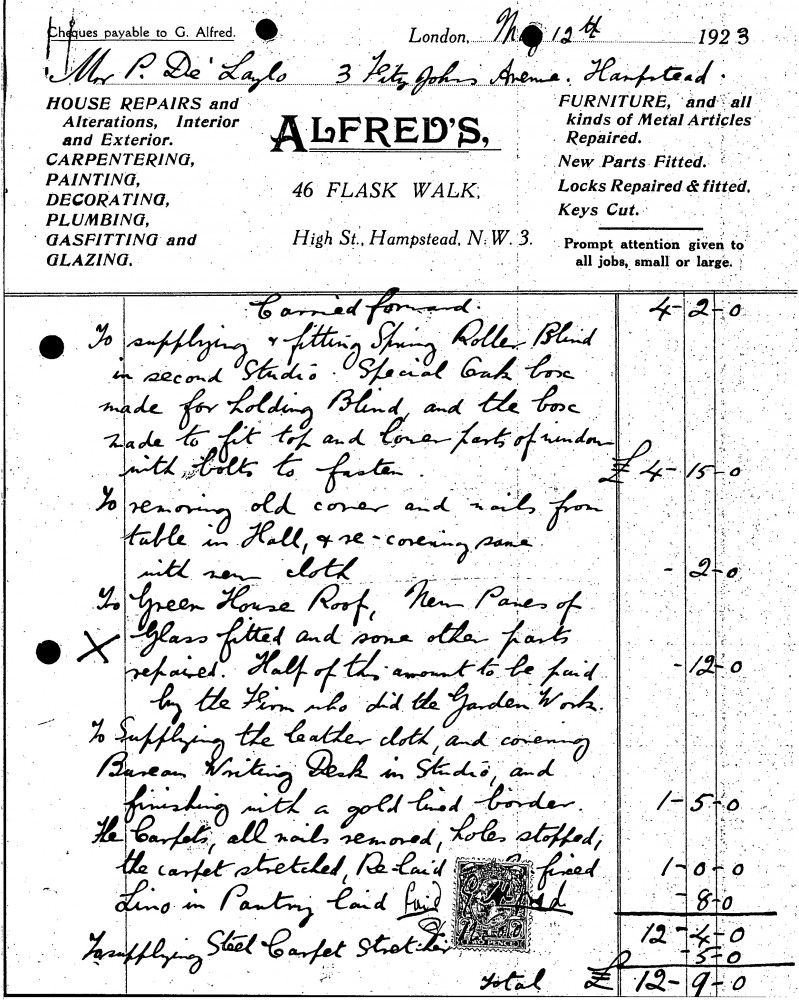 Cheques payable to G. Alfred.
London, May 12th 1923
Mr P. De' Lazlo 3 Fitz Johns Avenue. Hampstead.
HOUSE REPAIRS and
Alterations, Interior
and Exterior.
CARPENTERING,
PAINTING,
DECORATING,
PLUMBING,
GASFITTING and
GLAZING.
ALFRED'S,
46 FLASK WALK,
High St., Hampstead, N.W. 3.
FURNITURE, and all
kinds of Metal Articles
Repaired.
New Parts Fitted.
Locks Repaired & fitted.
Keys Cut.
Prompt attention given to
all jobs, small or large.
Carried forward. 4-2-0
To supplying & fitting Spring Roller Blind
in second Studio. Special Oak box
made for holding Blind, and the box
made to fit top and lower parts of window
with bolts to fasten. £ 4-15-0
To removing old cover and nails from
table in Hall, & re-covering same
with new cloth - 2-0
To Green House Roof, New Panes of
X Glass fitted and some other parts
repaired. Half of this amount to be paid - 12-0
by the Firm who did the Garden Work.
To Supplying the leather cloth, and covering
Bureau Writing Desk in Studio, and
finishing with a gold lined border. 1-5-0
The Carpets, all nails removed, holes stopped,
the carpet stretched, Re-laid fixed 1-0-0
Lino in Pantry laid Paid - 8-0
12-4-0
To supplying Steel Carpet Stretcher - 5-0
Total £ 12-9-0